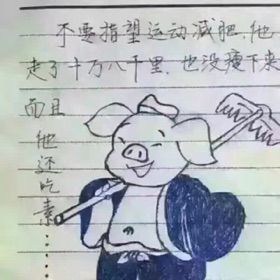 不要指望运动减肥,他
走了十万八千里,也没瘦下来
而且
他
还
吃
素……